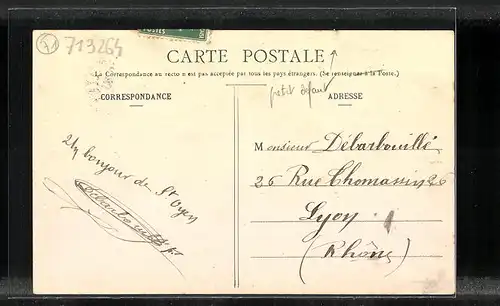 71
713264
POSTES
CARTE POSTALE
La Correspondance au recto n'est pas acceptée par tous les pays étrangers. (Se renseigner à la Poste.)
petit enfant
CORRESPONDANCE
Un bonjour de St Oyen
ADRESSE
Monsieur Débarbouillé
26 Rue Thomassin 26
Lyon
(Rhône)